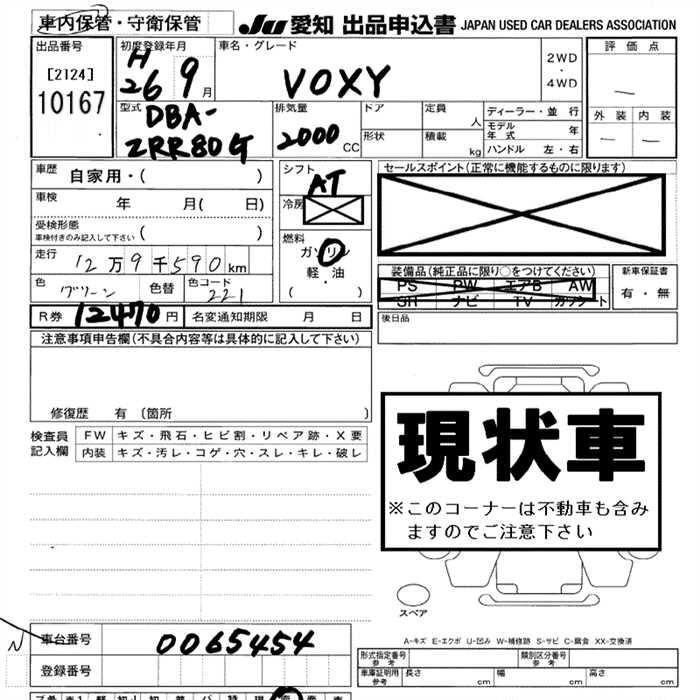 車内保管・守衛保管 JU 愛知 出品申込書 JAPAN USED CAR DEALERS ASSOCIATION
出品番号 初度登録年月 車名・グレード 評価点
[2124] H 2WD
・
10167 26 9 月 VOXY 4WD —
型式 排気量 ドア 定員 人 ディーラー・並行 外装 内装
DBA- 2000 CC 形状 積載 kg モデル年式 年 — —
ZRR80G ハンドル 左・右
車歴 自家用・( ) シフト AT セールスポイント(正常に機能するものに限ります)
車検 年 月( 日) 冷房
受検形態
車検付きのみ記入して下さい ( ) 燃料
ガソリン
走行 12万9千590km 軽・油 装備品(純正品に限り○をつけてください) 新車保証書
色 グリーン 色替 色コード 221 ( ) PS PW エアB AW 有・無
SR ナビ TV カワシート
R券 12470円 名変通知期限 月 日 後日品
注意事項申告欄(不具合内容等は具体的に記入して下さい)
修復歴 有 〔箇所 〕
現状車
※このコーナーは不動車も含み
ますのでご注意下さい
検査員 FW キズ・飛石・ヒビ割・リペア跡・X要
記入欄 内装 キズ・汚レ・コゲ・穴・スレ・キレ・破レ
スペア
A-キズ E-エクボ U-凹み W-補修跡 S-サビ C-腐食 XX-交換済
N 車台番号 0065454
形式指定番号 参考 類別区分番号 参考
登録番号 車庫証明用 参考 長さ cm 幅 cm 高さ cm